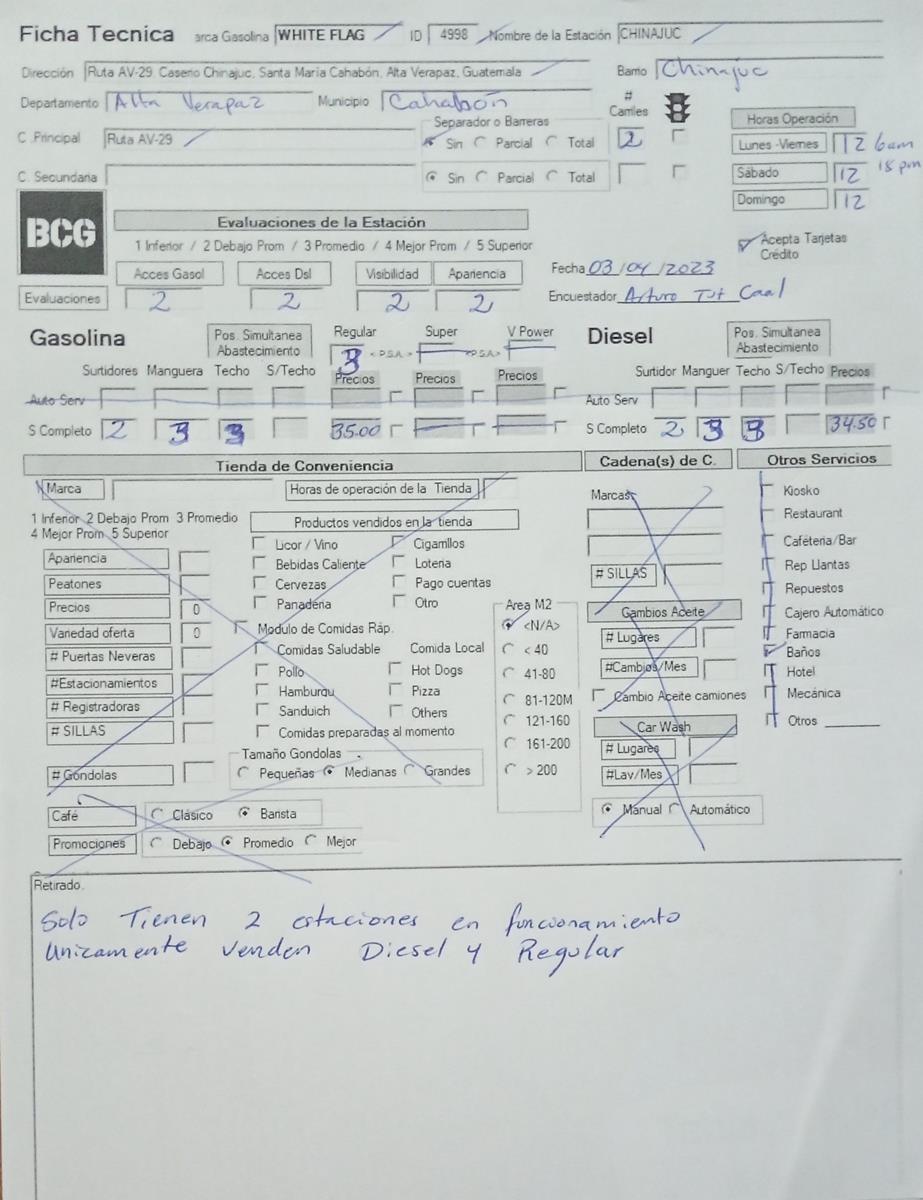 Ficha Tecnica arca Gasolina WHITE FLAG ID 4998 Nombre de la Estación CHINAJUC
Dirección Ruta AV-29, Caserio Chinajuc, Santa María Cahabón, Alta Verapaz, Guatemala Barrio Chinajuc
Departamento Alta Verapaz Municipio Cahabón # Carriles
Separador o Barreras Horas Operación
C. Principal Ruta AV-29 Sin Parcial Total 2 Lunes -Viernes 12 6am
C. Secundaria Sin Parcial Total Sábado 12 18 pm
Domingo 12
BCG Evaluaciones de la Estación
1 Inferior / 2 Debajo Prom / 3 Promedio / 4 Mejor Prom / 5 Superior Acepta Tarjetas
Crédito
Acces Gasol Acces Dsl Visibilidad Apariencia Fecha 03/04/2023
Evaluaciones 2 2 2 2 Encuestador Arturo Tut Caal
Gasolina Pos. Simultanea Abastecimiento Regular Super V Power Diesel Pos. Simultanea Abastecimiento
3 < P.S.A.> <P.S.A.>
Surtidores Manguera Techo S/Techo Precios Precios Precios Surtidor Manguer Techo S/Techo Precios
Auto Serv Auto Serv
S Completo 2 3 3 35.00 S Completo 2 3 3 34.50
Tienda de Conveniencia Cadena(s) de C. Otros Servicios
Marca Horas de operación de la Tienda Marcas Kiosko
1 Inferior 2 Debajo Prom 3 Promedio Productos vendidos en la tienda Restaurant
4 Mejor Prom 5 Superior
Licor / Vino Cigarrillos Cafétería/Bar
Apariencia Bebidas Caliente Loteria Rep Llantas
Peatones Cervezas Pago cuentas # SILLAS Repuestos
Precios 0 Panaderia Otro Area M2 Gambios Aceite Cajero Automático
Variedad oferta 0 Modulo de Comidas Ráp. <N/A> # Lugares Farmacia
# Puertas Neveras Comidas Saludable Comida Local < 40 Baños
#Estacionamientos Pollo Hot Dogs 41-80 #Cambios/Mes Hotel
# Registradoras Hamburgu Pizza 81-120M Cambio Aceite camiones Mecánica
# SILLAS Sanduich Others 121-160 Car Wash Otros
Comidas preparadas al momento 161-200 # Lugares
Tamaño Gondolas
# Góndolas Pequeñas Medianas Grandes > 200 #Lav/Mes
Café Clásico Barista Manual Automático
Promociones Debajo Promedio Mejor
Retirado.
Solo Tienen 2 estaciones en funcionamiento
Unicamente venden Diesel y Regular